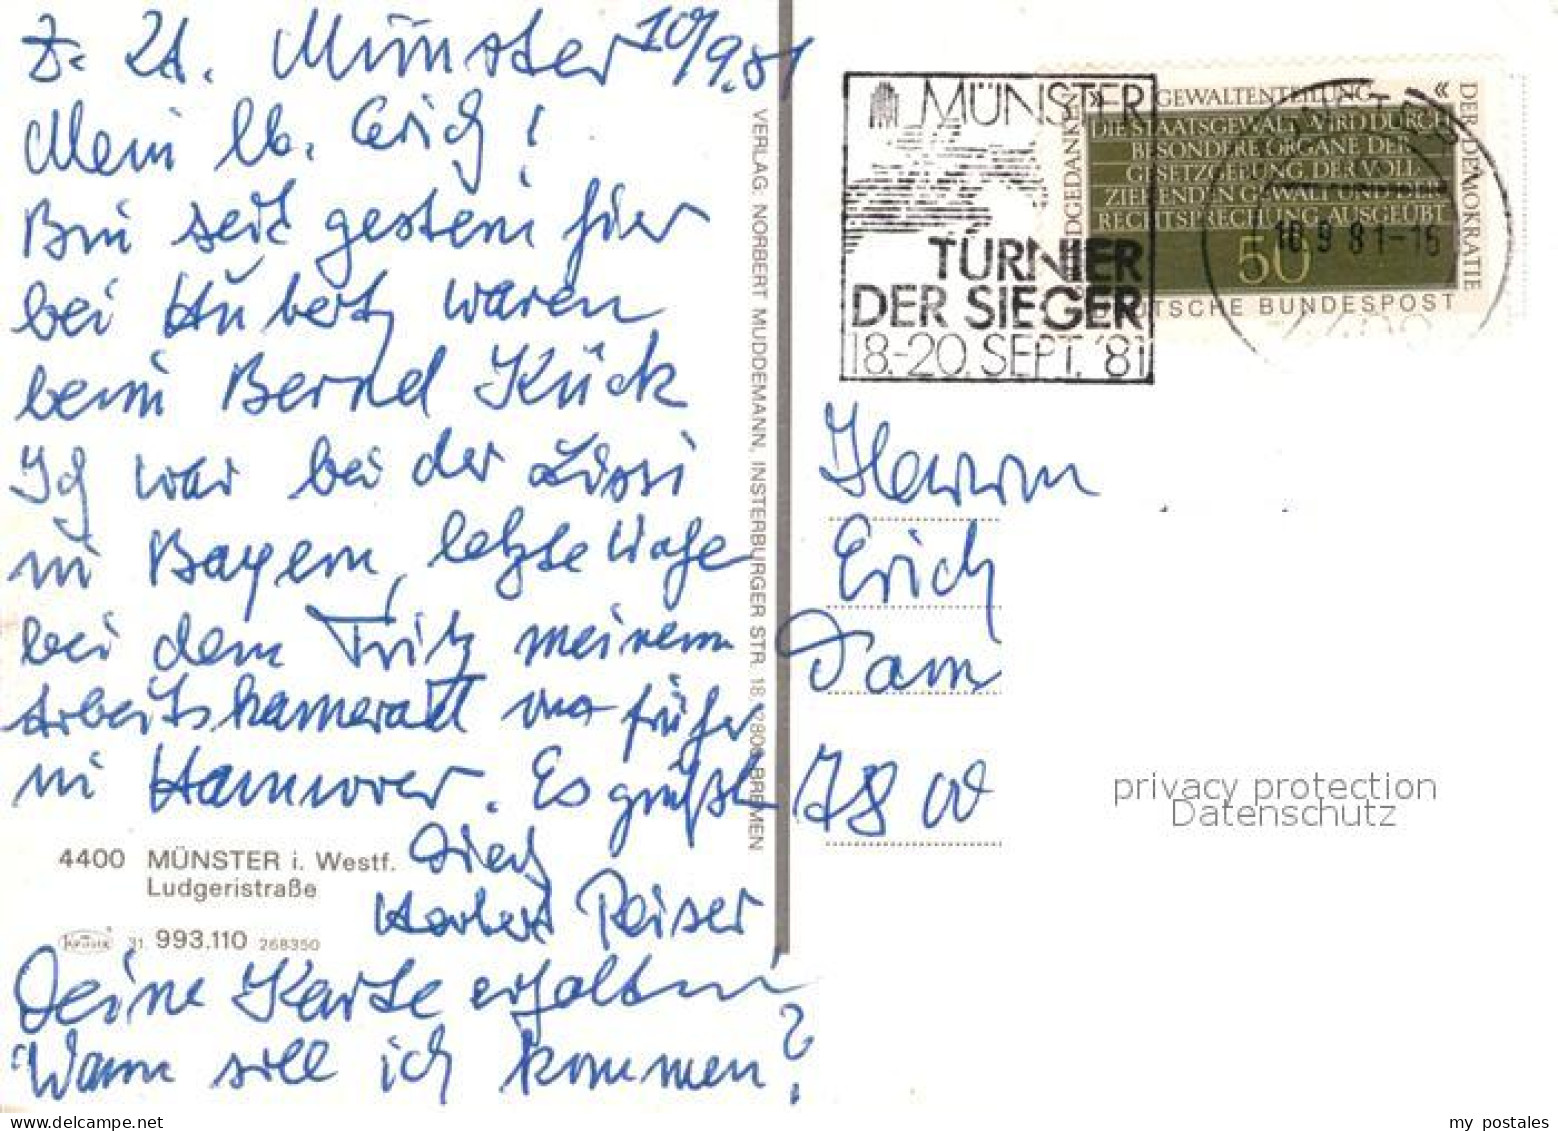 z. Zt. Münster 10/9.81
Mein lb. Erich!
Bin seit gestern hier
bei Hubert, waren
beim Bernd Kück
Ich war bei der Lissi
in Bayern, letzte Woche
bei dem Fritz meinem
Arbeitskamerad von früher
in Hannover. Es grüßt
Dich
Herbert Reiser
Deine Karte erhalten
Wann soll ich kommen?
4400 MÜNSTER i. Westf.
Ludgeristraße
KRÜGER 31 993.110 268350
VERLAG: NORBERT MUDDEMANN, INSTERBURGER STR. 18, 2800 BREMEN
MÜNSTER
TURNIER
DER SIEGER
18.-20. SEPT. '81
» GEWALTENTEILUNG «
DER DEMOKRATIE
DIE STAATSGEWALT WIRD DURCH
BESONDERE ORGANE DER
GESETZGEBUNG, DER VOLL
ZIEHENDEN GEWALT UND DER
RECHTSPRECHUNG AUSGEÜBT
50
DEUTSCHE BUNDESPOST
10.9.81-15
Herrn
Erich
Dam
7800
privacy protection
Datenschutz
my postales